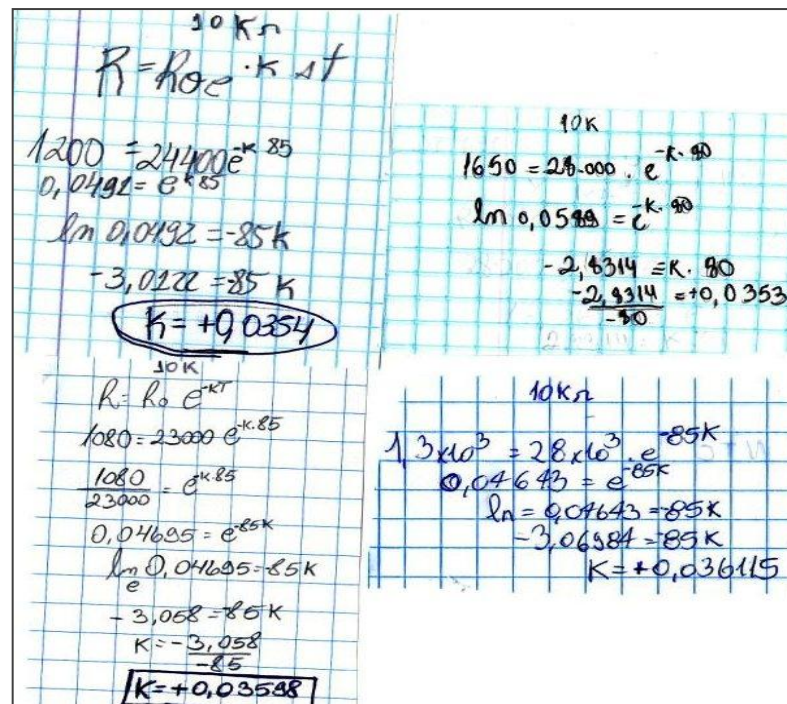 10 Kn
R = Roe^-K Δt
1200 = 24400e^-K 85
0,0492 = e^-K 85
ln 0,0492 = -85k
-3,0122 = 85 K
K = +0,0354
10K
1650 = 28.000 . e^-K. 80
ln 0,0589 = e^-K. 80
-2,8314 = K. 80
-2,8314 = +0,0353
-80
10K
R = Ro e^-KT
1080 = 23000 e^-K.85
1080 = e^-K.85
23000
0,04695 = e^-85K
ln 0,04695 = -85K
e
-3,058 = -85K
K = -3,058
-85
K = +0,03598
10Kn
1,3x10³ = 28x10³ . e^-85K
0,04643 = e^-85K
ln = 0,04643 = -85K
-3,06984 = -85K
K = +0,036115